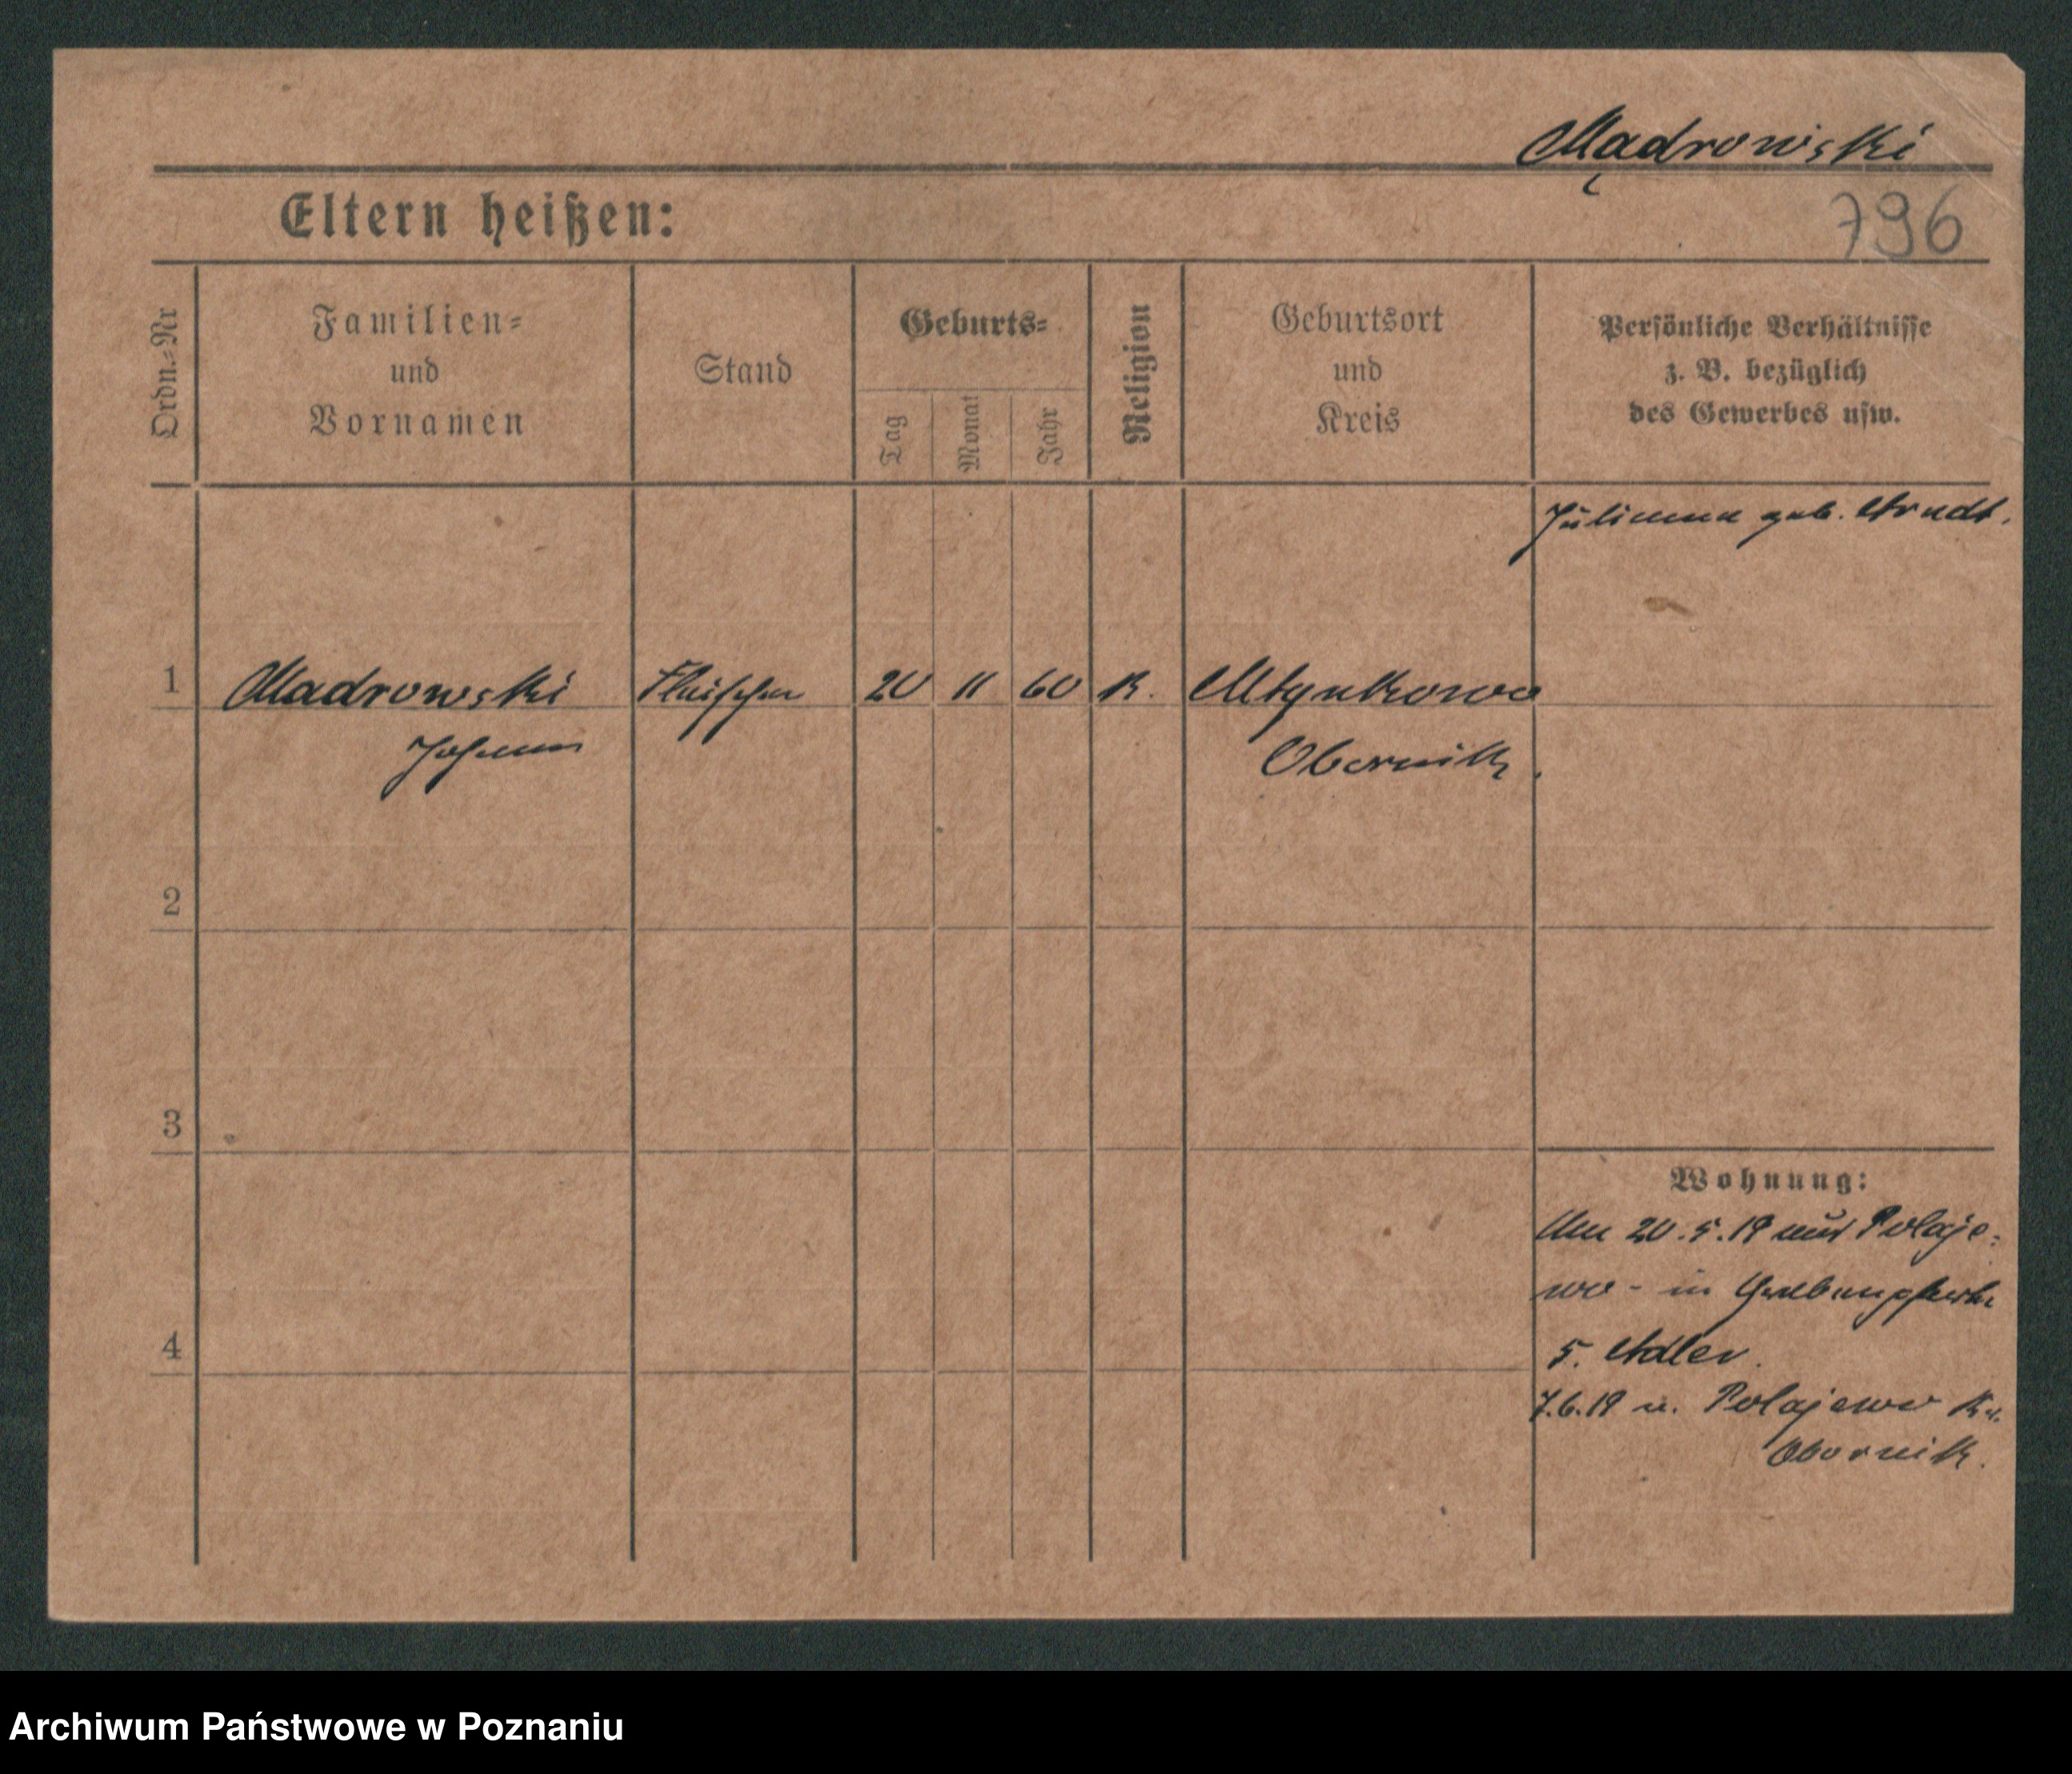 Mądrowski
Eltern heißen:
796
Ordn.-Nr
Familien-
und
Vornamen
Stand
Geburts-
Tag
Monat
Jahr
Religion
Geburtsort
und
Kreis
Persönliche Verhältnisse
z. B. bezüglich
des Gewerbes usw.
Julianna geb. Arndt.
1
Madrowski
Fleischer
20
11
60
K.
Młynkowo
Johann
Obornik.
2
3
Wohnung:
Am 20.5.19 aus Polaje-
wo - in
5. Adler.
4
7.6.19 n. Polajewo Kr.
Obornik.
Archiwum Państwowe w Poznaniu